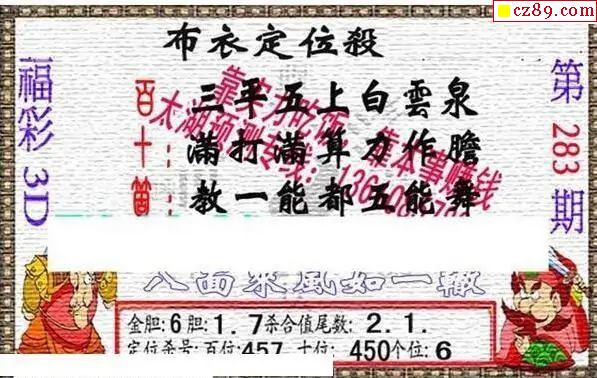 cz89.com
布衣定位殺
福彩3D
第283期
百：三平五上白雲泉
十：滿打滿算力作膽
個：教一能都五能舞
八面來風如一轍
金胆:6胆:1.7杀合值尾数:2.1.
定位杀号:百位:457 十位:450个位:6